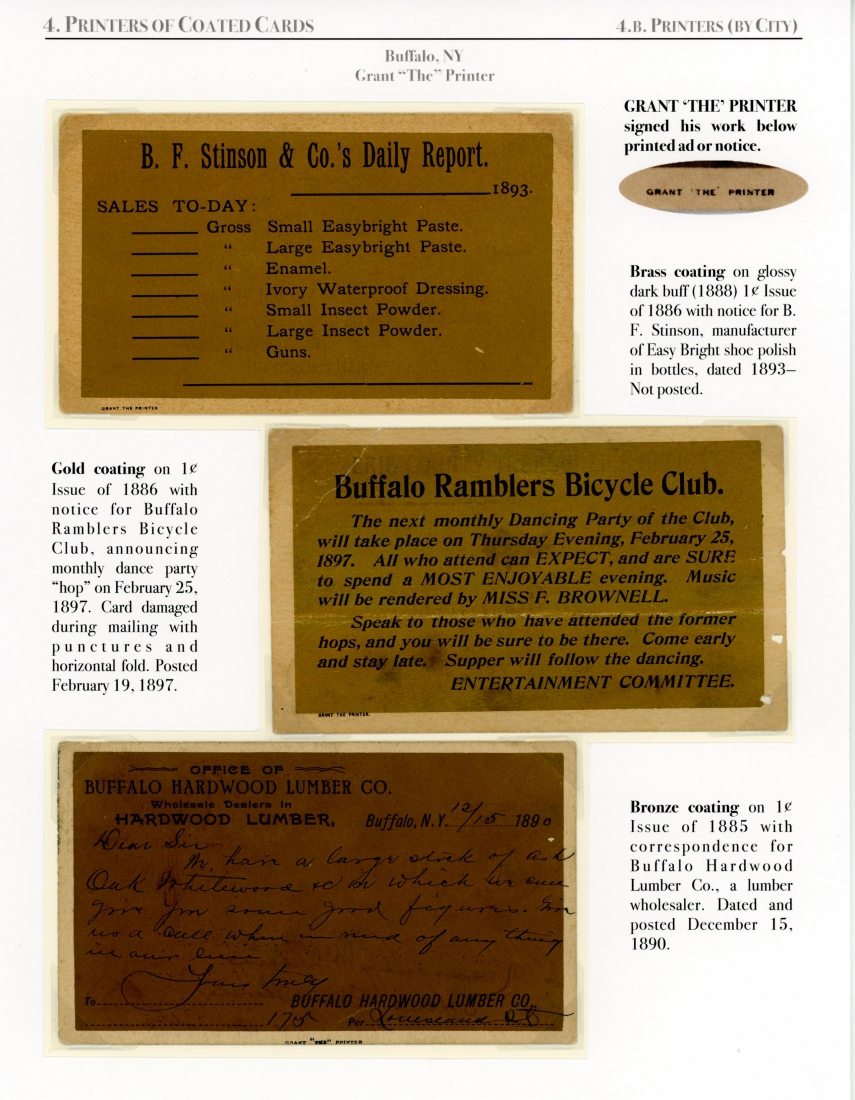 4. Printers of Coated Cards
4.B. Printers (by City)
Buffalo, NY
Grant “The” Printer
B. F. Stinson & Co.'s Daily Report.
1893.
SALES TO-DAY:
Gross Small Easybright Paste.
“ Large Easybright Paste.
“ Enamel.
“ Ivory Waterproof Dressing.
“ Small Insect Powder.
“ Large Insect Powder.
“ Guns.
GRANT THE PRINTER
GRANT ‘THE’ PRINTER
signed his work below
printed ad or notice.
GRANT 'THE' PRINTER
Brass coating on glossy
dark buff (1888) 1¢ Issue
of 1886 with notice for B.
F. Stinson, manufacturer
of Easy Bright shoe polish
in bottles, dated 1893–
Not posted.
Gold coating on 1¢
Issue of 1886 with
notice for Buffalo
Ramblers Bicycle
Club, announcing
monthly dance party
“hop” on February 25,
1897. Card damaged
during mailing with
punctures and
horizontal fold. Posted
February 19, 1897.
Buffalo Ramblers Bicycle Club.
The next monthly Dancing Party of the Club,
will take place on Thursday Evening, February 25,
1897. All who attend can EXPECT, and are SURE
to spend a MOST ENJOYABLE evening. Music
will be rendered by MISS F. BROWNELL.
Speak to those who have attended the former
hops, and you will be sure to be there. Come early
and stay late. Supper will follow the dancing.
ENTERTAINMENT COMMITTEE.
GRANT THE PRINTER.
OFFICE OF
BUFFALO HARDWOOD LUMBER CO.
Wholesale Dealers in
HARDWOOD LUMBER,
Buffalo, N.Y. 12/15 1890
Dear Sir
We have a large stock of ash
Oak Whitewood &c on which we can
give you some good figures. Give
us a call when in need of any thing
in our line
Yours truly
To
BUFFALO HARDWOOD LUMBER CO.
175 Per
GRANT "THE" PRINTER
Bronze coating on 1¢
Issue of 1885 with
correspondence for
Buffalo Hardwood
Lumber Co., a lumber
wholesaler. Dated and
posted December 15,
1890.